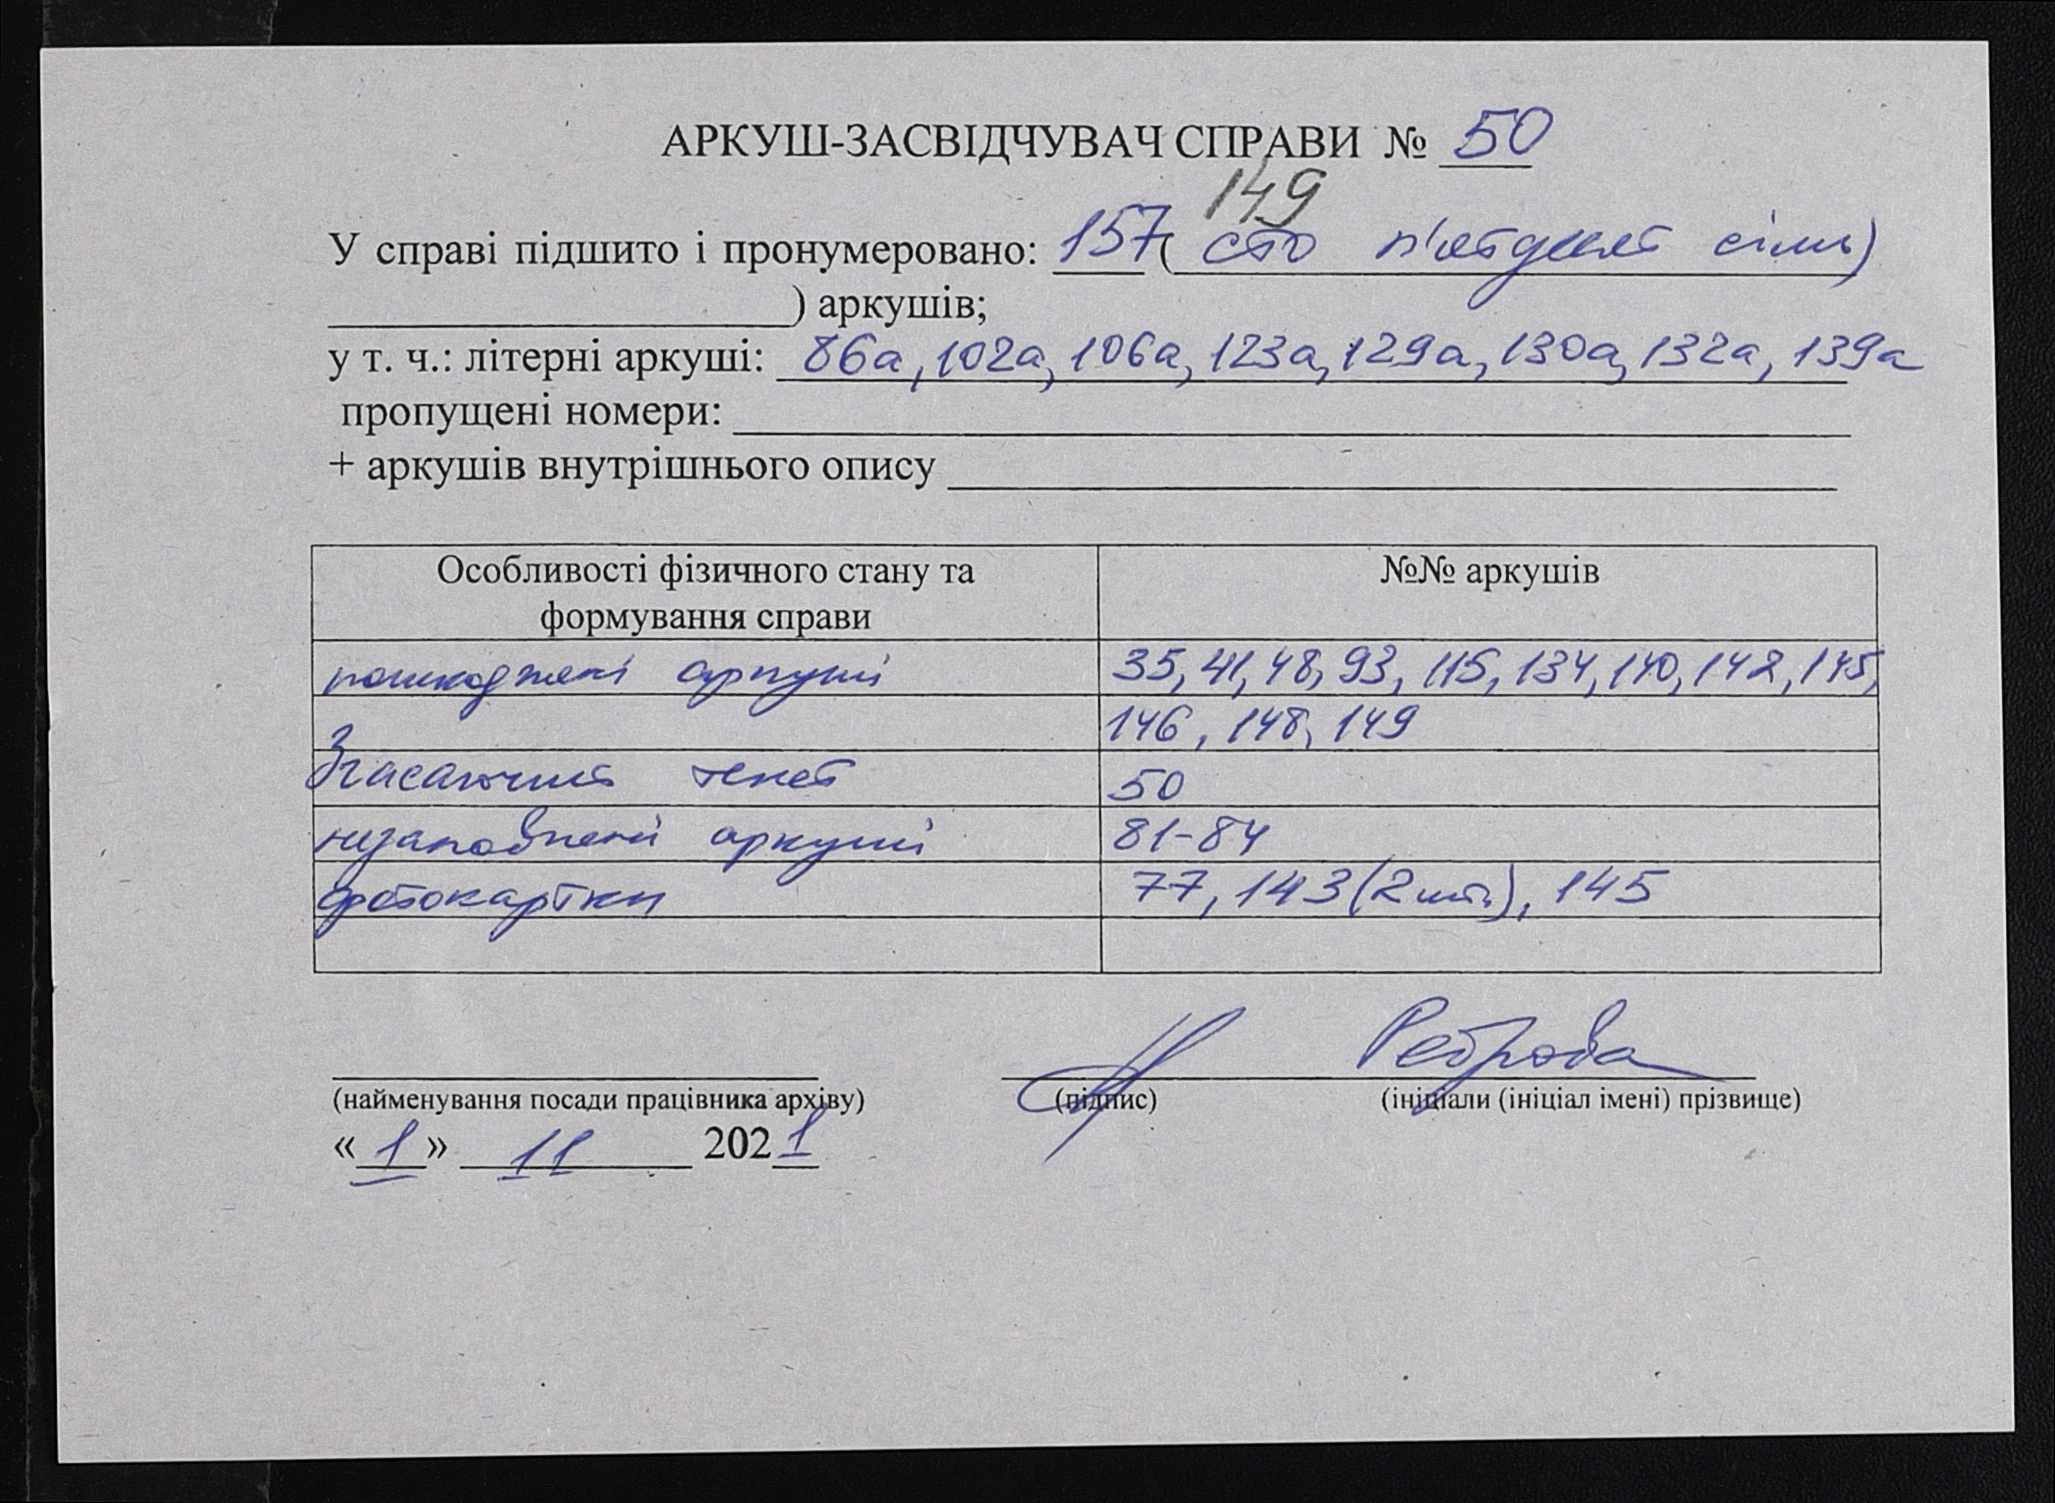 АРКУШ-ЗАСВІДЧУВАЧ СПРАВИ № 50
149
У справі підшито і пронумеровано: 157 ( сто п'ятдесят сім )
) аркушів;
у т. ч.: літерні аркуші: 86а, 102а, 106а, 123а, 129а, 130а, 132а, 139а
пропущені номери:
+ аркушів внутрішнього опису
Особливості фізичного стану та формування справи №№ аркушів
пошкоджені аркуші 35, 41, 48, 93, 115, 134, 140, 142, 145,
146, 148, 149
Згасаючий текст 50
незаповнені аркуші 81-84
фотокартки 77, 143 (2 шт.), 145
Реброва
(найменування посади працівника архіву) (підпис) (ініціали (ініціал імені) прізвище)
« 1 » 11 2021